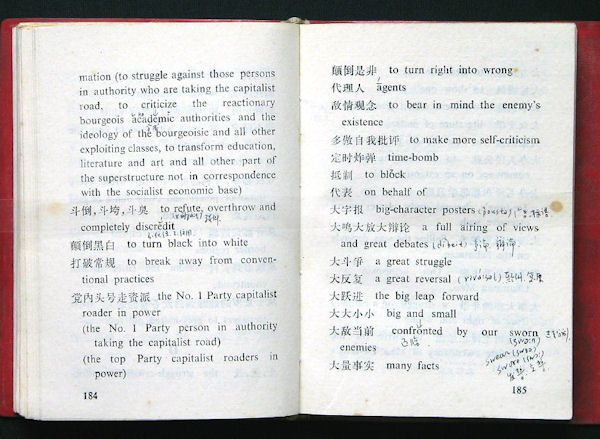 mation (to struggle against those persons
in authority who are taking the capitalist
road, to criticize the reactionary
bourgeois academic authorities and the
ideology of the bourgeoisie and all other
exploiting classes, to transform education,
literature and art and all other part of
the superstructure not in correspondence
with the socialist economic base)
斗倒,斗垮,斗臭 to refute, overthrow and
completely discredit
颠倒黑白 to turn black into white
打破常规 to break away from conven-
tional practices
党内头号走资派 the No. 1 Party capitalist
roader in power
(the No. 1 Party person in authority
taking the capitalist road)
(the top Party capitalist roaders in
power)
184
颠倒是非 to turn right into wrong
代理人 agents
敌情观念 to bear in mind the enemy's
existence
多做自我批评 to make more self-criticism
定时炸弹 time-bomb
抵制 to block
代表 on behalf of
大字报 big-character posters
大鸣大放大辩论 a full airing of views
and great debates
大斗争 a great struggle
大反复 a great reversal
大跃进 the big leap forward
大大小小 big and small
大敌当前 confronted by our sworn
enemies
大量事实 many facts
swear
185